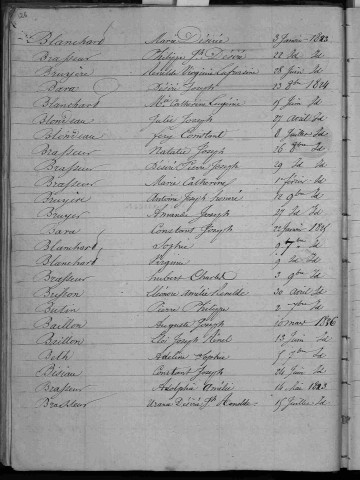 Blanchard Marie Désirée 3 Janvier 1823
Brasseur Philippe Jh Désiré 22 Id Id
Bruyère Virginie 28 Juin Id
Bara Désiré Joseph 23 8bre 1824
Blanchard Mie Catherine Eugénie 15 Juin Id
Blondeau Jules Joseph 27 Avril Id
Blondeau Constant 8 Juillet Id
Brasseur Natalie Joseph 26 8bre Id
Brasseur Désiré Pierre Joseph 29 Id Id
Brasseur Marie Catherine 1er février Id
Bruyère Antoine Joseph 10 9bre Id
Bruyer Amande Joseph 27 Id Id
Bara Constant Joseph 22 Janvier 1825
Blanchard Sophie 9 7bre Id
Blanchard Virginie 9 Id Id
Brasseur Hubert Charles 3 9bre Id
Amélie 30 Avril Id
Butin Pierre Philippe 2 7bre Id
Baillon Auguste Joseph 10 mars 1826
Baillon Eloi Joseph 13 Juin Id
Beth Adeline Sophie 5 7bre Id
Constant Joseph 24 Juin Id
Brasseur Adolphe Amélie 16 1823
Brasseur Désiré Jh 15 Juillet Id